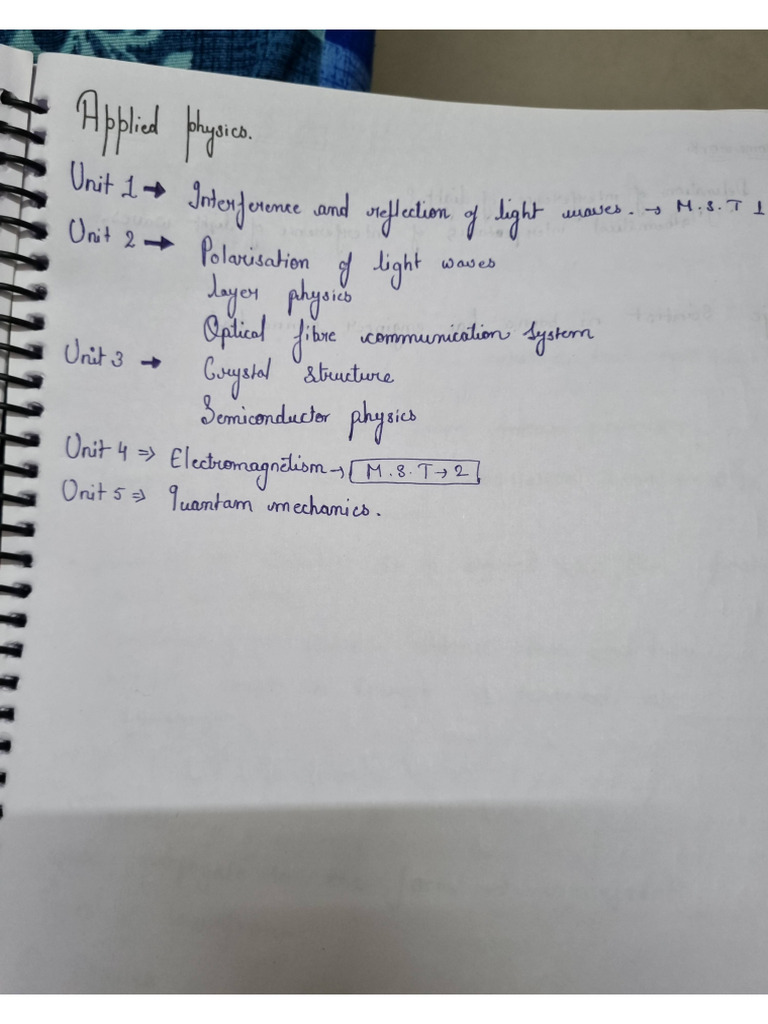 Applied physics.
Unit 1 → Interference and reflection of light waves. → M.S.T 1
Unit 2 → Polarisation of light waves
layer physics
Optical fibre communication System
Unit 3 → Crystal structure
Semiconductor physics
Unit 4 ⇒ Electromagnetism → M.S.T → 2
Unit 5 ⇒ quantam mechanics.